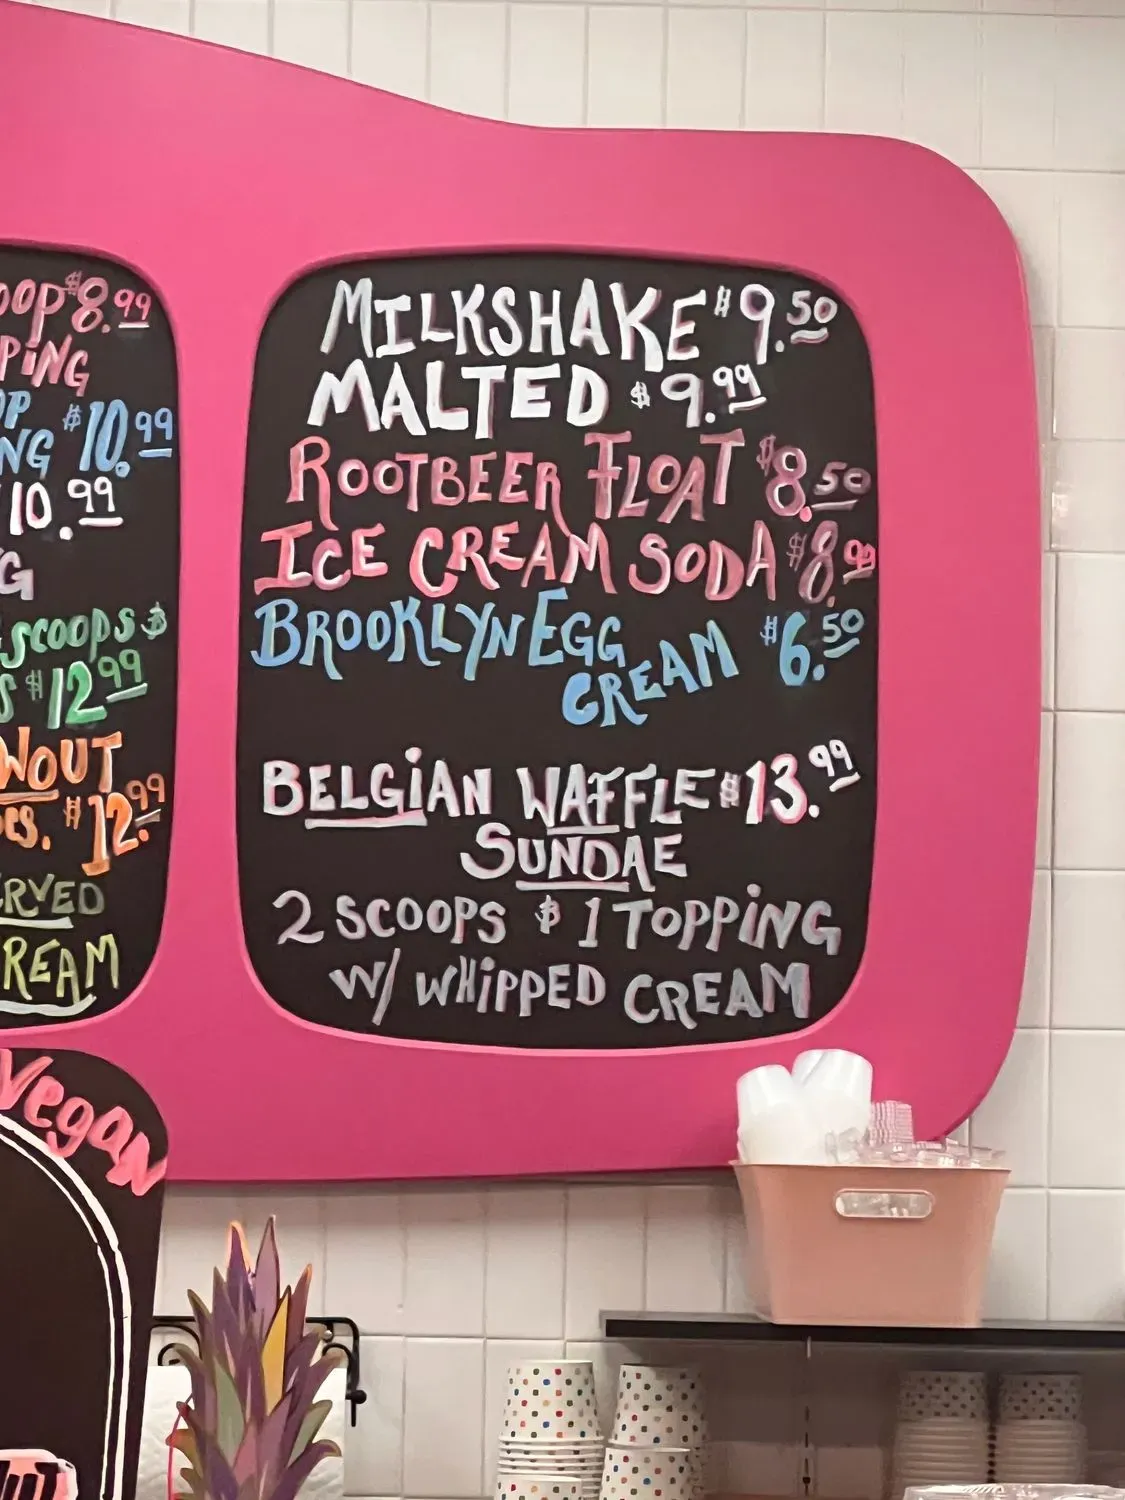 $8.99
$10.99
10.99
SCOOPS &
$12.99
$12.99
Vegan
MILKSHAKE $9.50
MALTED $9.99
ROOTBEER FLOAT $8.50
ICE CREAM SODA $8.99
BROOKLYN EGG CREAM $6.50
BELGIAN WAFFLE $13.99
SUNDAE
2 SCOOPS & 1 TOPPING
W/ WHIPPED CREAM